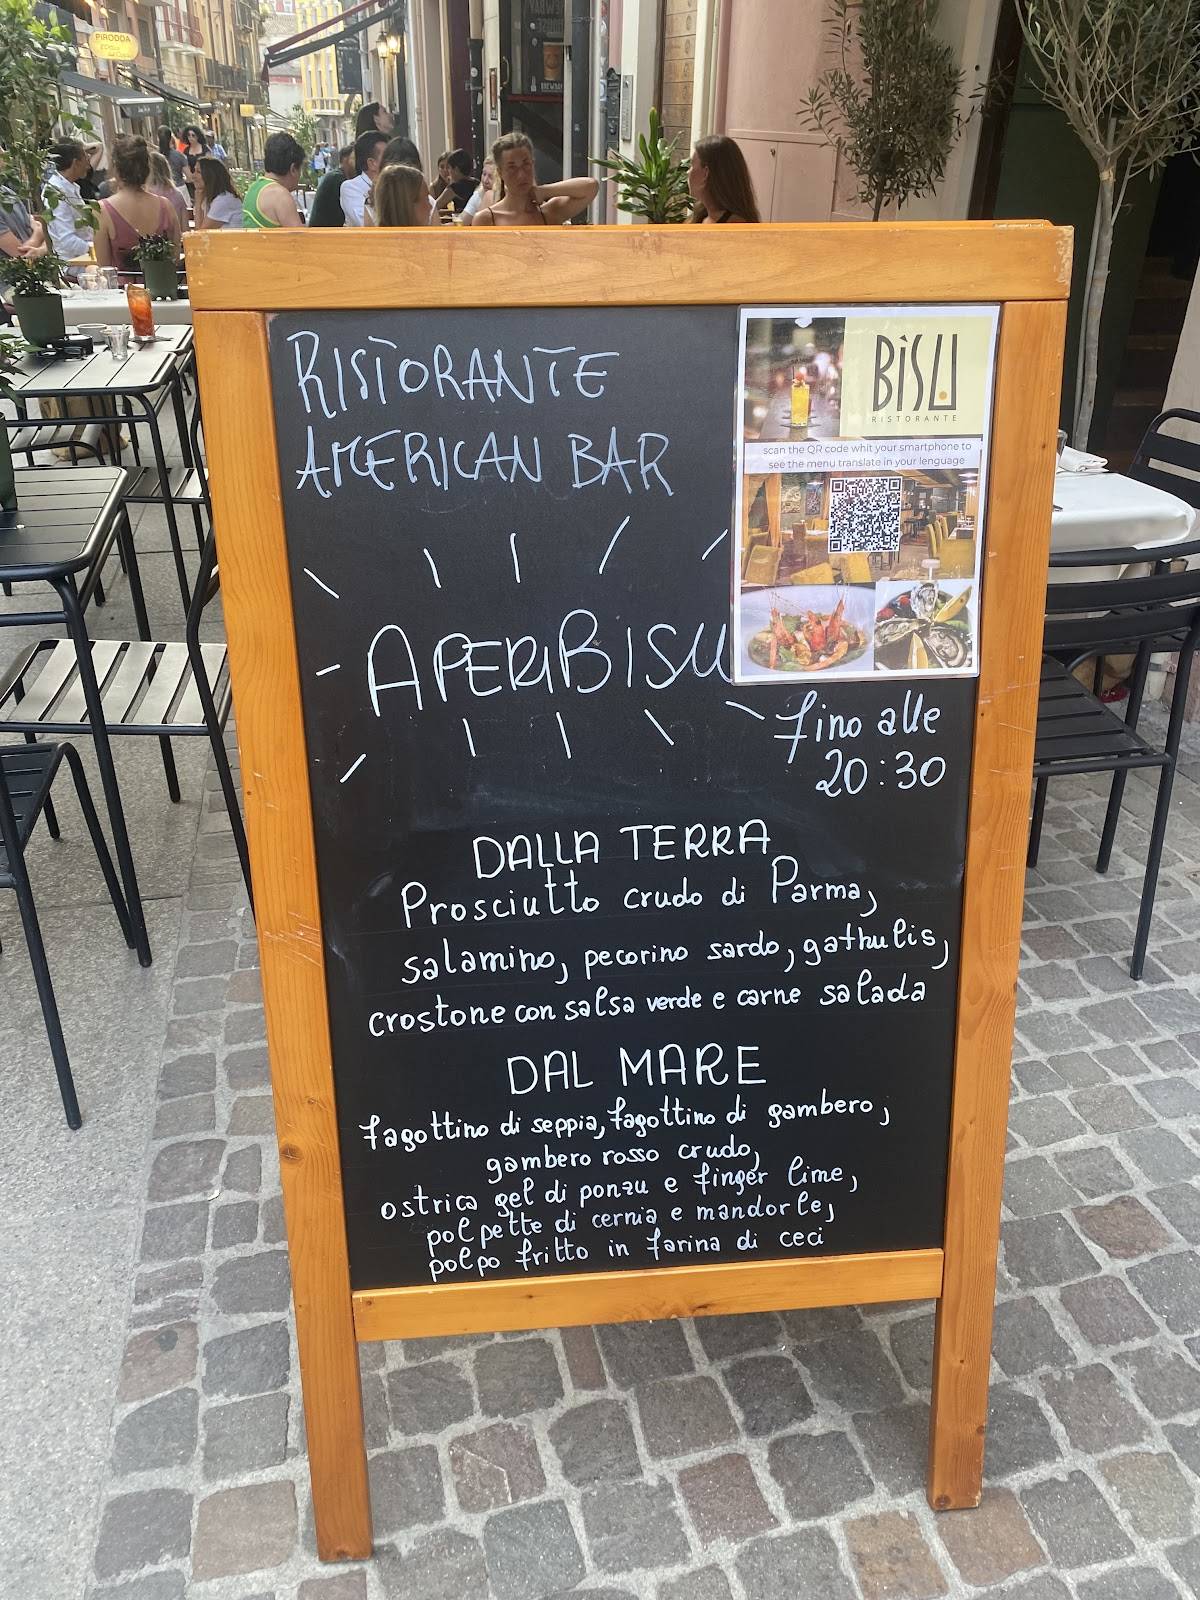 PIRODDA
RISTORANTE
AMERICAN BAR
BÌSU
RISTORANTE
scan the QR code whit your smartphone to
see the menu translate in your lenguage
APERIBISU
fino alle
20:30
DALLA TERRA
Prosciutto crudo di Parma,
salamino, pecorino sardo, gathulis,
crostone con salsa verde e carne salada
DAL MARE
fagottino di seppia, fagottino di gambero,
gambero rosso crudo,
ostrica gel di ponzu e finger lime,
polpette di cernia e mandorle,
polpo fritto in farina di ceci